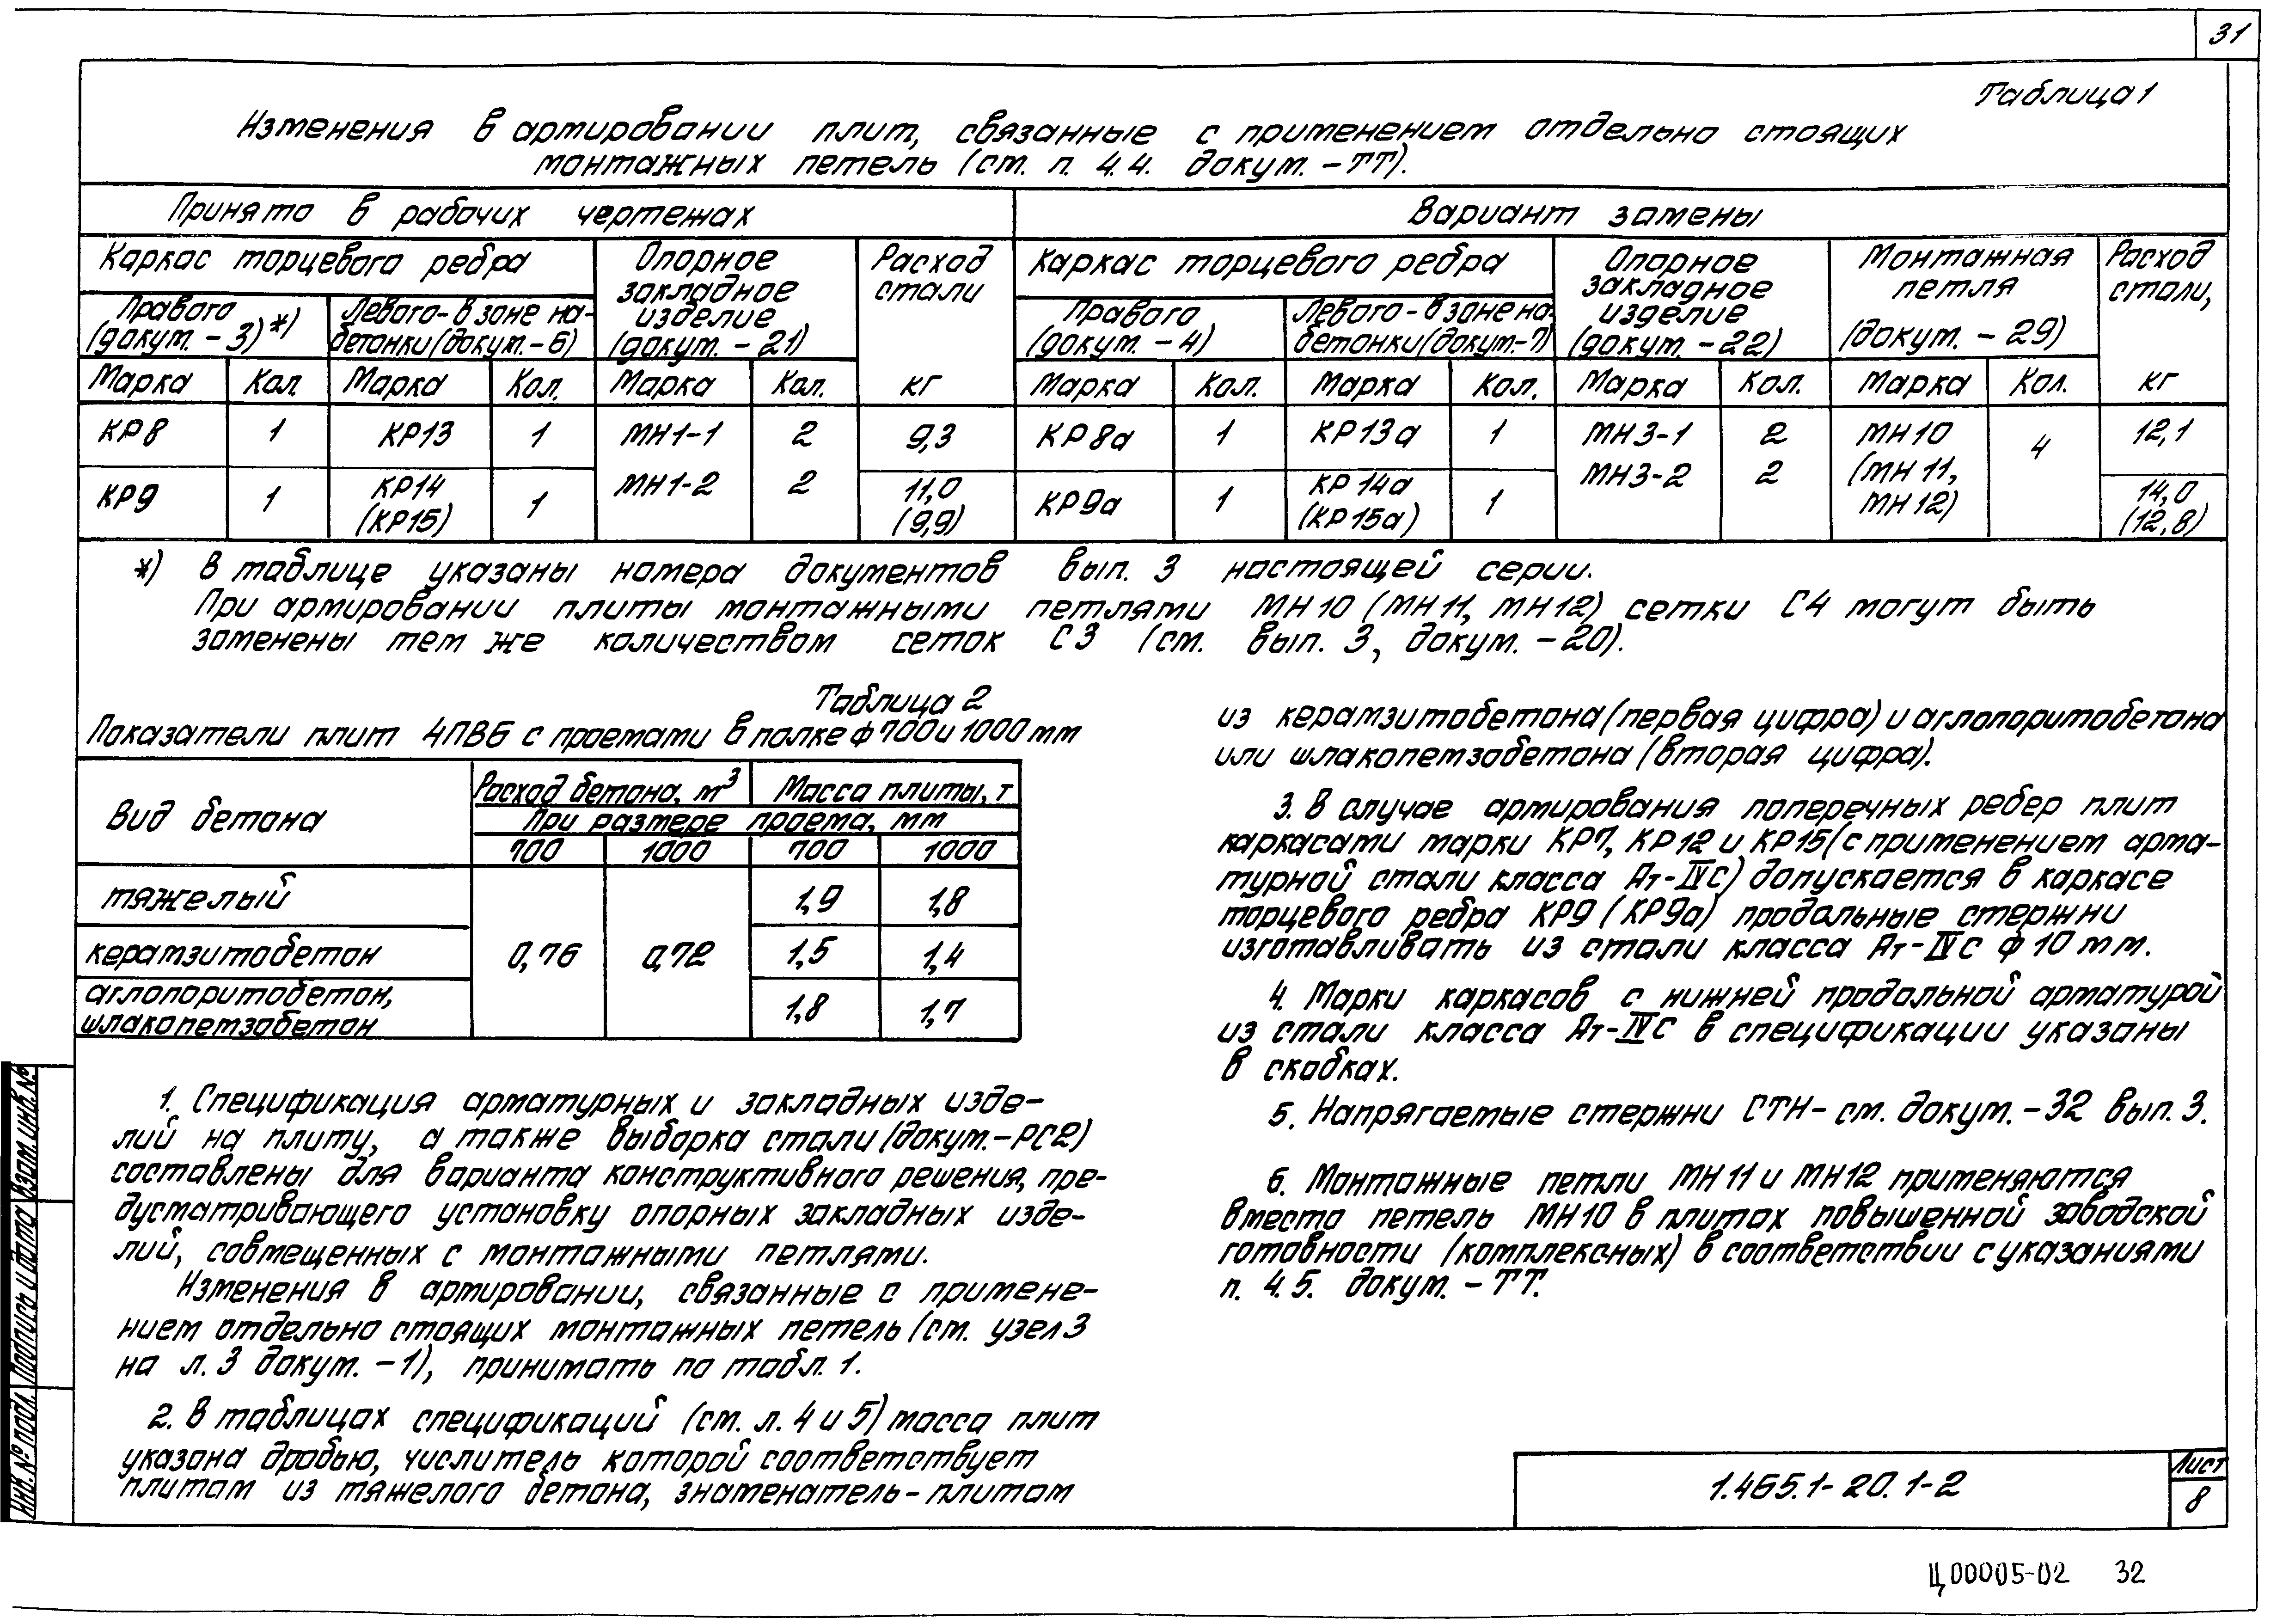 31
Таблица 1
Изменения в армировании плит, связанные с применением отдельно стоящих
монтажных петель (см. п. 4.4. докум. – ТТ).
Принято в рабочих чертежах
Вариант замены
Каркас торцевого ребра
Опорное закладное изделие (докум. – 21)
Расход стали
Каркас торцевого ребра
Опорное закладное изделие (докум. – 22)
Монтажная петля (докум. – 29)
Расход стали,
Правого (докум. – 3)*)
Левого-в зоне набетонки (докум. – 6)
Правого (докум. – 4)
Левого-в зоне набетонки (докум.-7)
Марка Кол. Марка Кол. Марка Кол. кг Марка Кол. Марка Кол. Марка Кол. Марка Кол. кг
КР8 1 КР13 1 МН1-1 2 9,3 КР8а 1 КР13а 1 МН3-1 2 МН10 4 12,1
КР9 1 КР14 (КР15) 1 МН1-2 2 11,0 (9,9) КР9а 1 КР14а (КР15а) 1 МН3-2 2 (МН11, МН12) 14,0 (12,8)
*) В таблице указаны номера документов вып. 3 настоящей серии.
При армировании плиты монтажными петлями МН10 (МН11, МН12) сетки С4 могут быть
заменены тем же количеством сеток С3 (см. вып. 3, докум. – 20).
Таблица 2
Показатели плит 4ПВ6 с проемами в полке ф 700 и 1000 мм
Вид бетона
Расход бетона, м³
Масса плиты, т
При размере проема, мм
700 1000 700 1000
тяжелый 1,9 1,8
керамзитобетон 0,76 0,72 1,5 1,4
аглопоритобетон,
шлакопемзобетон 1,8 1,7
1. Спецификация арматурных и закладных изде-
лий на плиту, а также выборка стали (докум.-РС2)
составлены для варианта конструктивного решения, пре-
дусматривающего установку опорных закладных изде-
лий, совмещенных с монтажными петлями.
Изменения в армировании, связанные с примене-
нием отдельно стоящих монтажных петель (см. узел 3
на л. 3 докум. – 1), принимать по табл. 1.
2. В таблицах спецификаций (см. л. 4 и 5) масса плит
указана дробью, числитель которой соответствует
плитам из тяжелого бетона, знаменатель – плитам
из керамзитобетона (первая цифра) и аглопоритобетона
или шлакопемзобетона (вторая цифра).
3. В случае армирования поперечных ребер плит
каркасами марки КР7, КР12 и КР15 (с применением арма-
турной стали класса Ат-IVС) допускается в каркасе
торцевого ребра КР9 (КР9а) продольные стержни
изготавливать из стали класса Ат-IVс ф 10 мм.
4. Марки каркасов с нижней продольной арматурой
из стали класса Ат-IVС в спецификации указаны
в скобках.
5. Напрягаемые стержни СТН – см. докум. – 32 вып. 3.
6. Монтажные петли МН11 и МН12 применяются
вместо петель МН10 в плитах повышенной заводской
готовности (комплексных) в соответствии с указаниями
п. 4.5. докум. – ТТ.
Инв. № подл. Подпись и дата Взам. инв. №
1.465.1-20.1-2
Лист
8
Ц00005-02 32